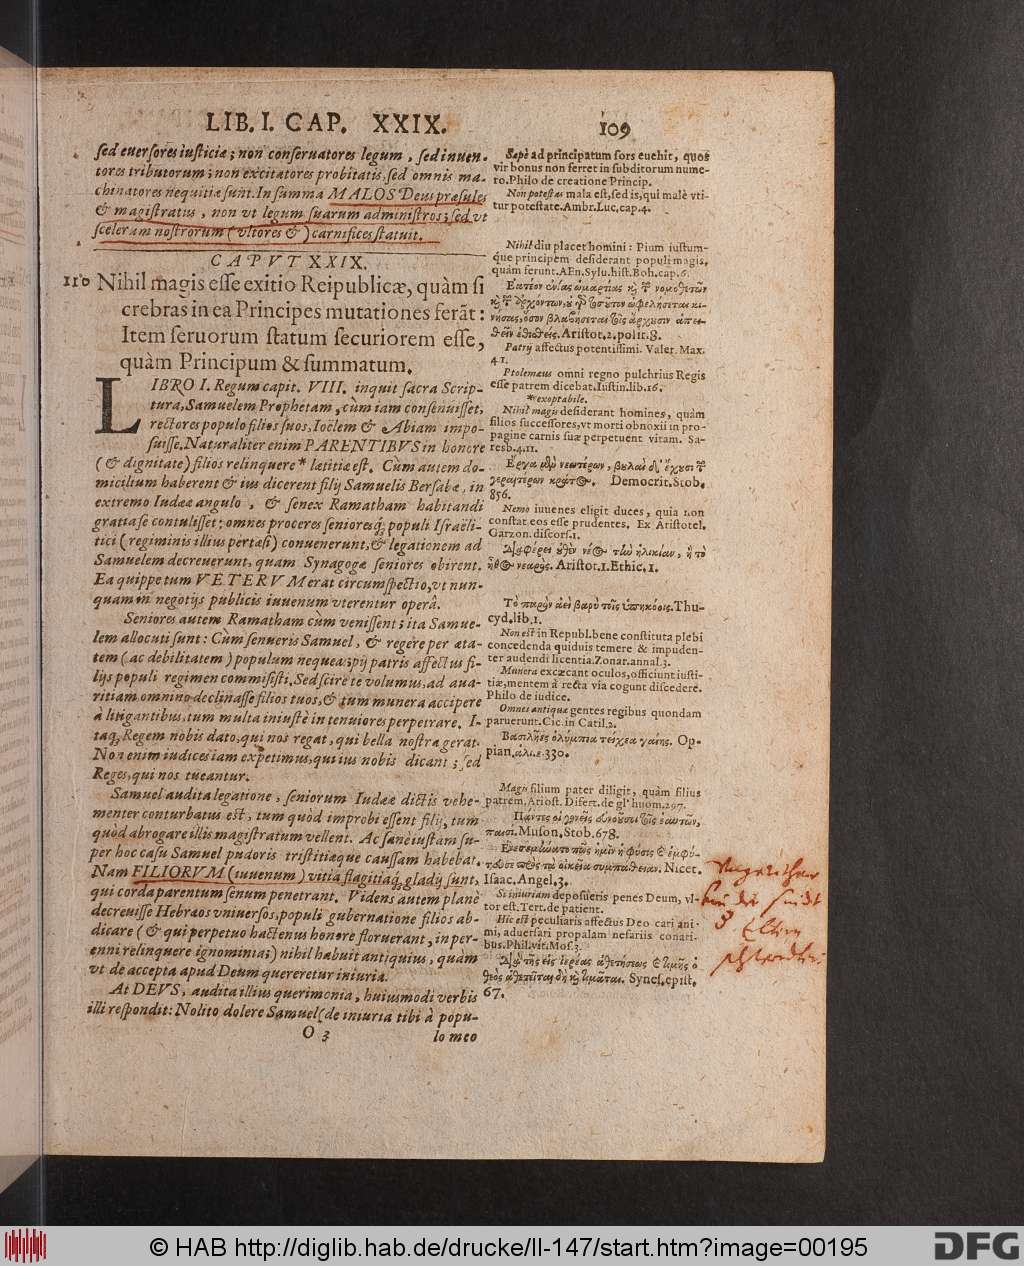 LIB. I. CAP. XXIX. 109
sed euersores iusticiæ; non conseruatores legum, sed inuen-
tores tributorum; non excitatores probitatis, sed omnis ma-
chinatores nequitiæ sunt. In summa MALOS Deus præsules
& magistratus, non vt legum suarum administros; sed vt
sceleram nostrorum (vltores &) carnifices statuit.
CAPVT XXIX.
110 Nihil magis esse exitio Reipublicæ, quàm si
crebras in ea Principes mutationes ferāt:
Item seruorum statum securiorem esse,
quàm Principum & summatum.
LIBRO I. Regum capit. VIII. inquit sacra Scrip-
tura, Samuelem Prophetam, cùm iam consenuisset,
rectores populo filios suos, Ioëlem & Abiam impo-
suisse. Naturaliter enim PARENTIBVS in honore
(& dignitate) filios relinquere* lætitiæ est. Cùm autem do-
micilium haberent & ius dicerent filij Samuelis Bersabæ, in
extremo Iudææ angulo, & senex Ramatham habitandi
gratia se contulisset; omnes proceres senioresq́; populi Israëli-
tici (regiminis illius pertæsi) conuenerunt, & legationem ad
Samuelem decreuerunt, quam Synagogæ seniores obirent.
Ea quippe tum VETERVM erat circumspectio, vt nun-
quam in negotijs publicis iuuenum vterentur operâ.
Seniores autem Ramatham cùm venissent; ita Samue-
lem allocuti sunt: Cùm senueris Samuel, & regere per æta-
tem (ac debilitatem) populum nequeas; pij patris affectus fi-
lijs populi regimen commisisti. Sed scire te volumus, ad aua-
ritiam omnino declinasse filios tuos, & tum munera accipere
à litigantibus, tum multa iniustè in tenuiores perpetrare. I-
taq; Regem nobis dato, qui nos regat, qui bella nostra gerat.
Non enim iudices iam expetimus, qui ius nobis dicant; sed
Reges, qui nos tueantur.
Samuel audita legatione, seniorum Iudææ dictis vehe-
menter conturbatus est, tum quòd improbi essent filij, tum
quòd abrogare illis magistratum vellent. Ac sanè iustam su-
per hoc casu Samuel pudoris tristitiæque caussam habebat.
Nam FILIORVM (iuuenum) vitia flagitiaq́; gladij sunt,
qui corda parentum senum penetrant. Videns autem planè
decreuisse Hebræos vniuersos, populi gubernatione filios ab-
dicare (& qui perpetuo hactenus honore floruerant, in per-
enni relinquere ignominia;) nihil habuit antiquius, quàm
vt de accepta apud Deum quereretur iniuria.
At DEVS, audita illius querimonia, huiusmodi verbis
illi respondit: Nolito dolere Samuel (de iniuria tibi à popu-
O 3 lo meo
Sæpè ad principatum sors euehit, quos
vir bonus non ferret in subditorum nume-
ro. Philo de creatione Princip.
Non potestas mala est, sed is, qui malè vti-
tur potestate. Ambr. Luc. cap. 4.
Nihil diu placet homini: Pium iustum-
que principem desiderant populi magis,
quàm ferunt. AEn. Sylu. hist. Boh. cap. 6.
Aristot. 2. polit. 8.
Patrij affectus potentissimi. Valer. Max.
4. 1.
Ptolemæus omni regno pulchrius Regis
esse patrem dicebat. Iustin. lib. 16.
* exoptabile.
Nihil magis desiderant homines, quàm
filios successores, vt morti obnoxii in pro-
pagine carnis suæ perpetuent vitam. Sa-
resb. 4. 11.
Democrit. Stob.
856.
Nemo iuuenes eligit duces, quia non
constat eos esse prudentes. Ex Aristotel.
Garzon. discors. 1.
Aristot. 1. Ethic. 1.
Τὸ παρὸν ἀεὶ βαρὺ τοῖς ὑπηκόοις. Thu-
cyd. lib. 1.
Non est in Republ. bene constituta plebi
concedenda quiduis temere & impuden-
ter audendi licentia. Zonar. annal. 3.
Munera excæcant oculos, officiunt iusti-
tiæ, mentem à recta via cogunt discedere.
Philo de iudice.
Omnes antiquæ gentes regibus quondam
paruerunt. Cic. in Catil. 2.
Βασιλῆες ὀλύμπια τείχεα γαίης. Op-
pian. ἁλι. ε. 330.
Magis filium pater diligit, quàm filius
patrem. Ariost. Disert. de gl' huom. 297.
Muson. Stob. 678.
Nicet.
Isaac. Angel. 3.
Si iniuriam deposueris penes Deum, vl-
tor est. Tert. de patient.
Hic est peculiaris affectus Deo cari ani-
mi, aduersari propalam nefariis conati-
bus. Phil. vit. Mos. 3.
Synes. epist.
67.
© HAB http://diglib.hab.de/drucke/li-147/start.htm?image=00195
DFG